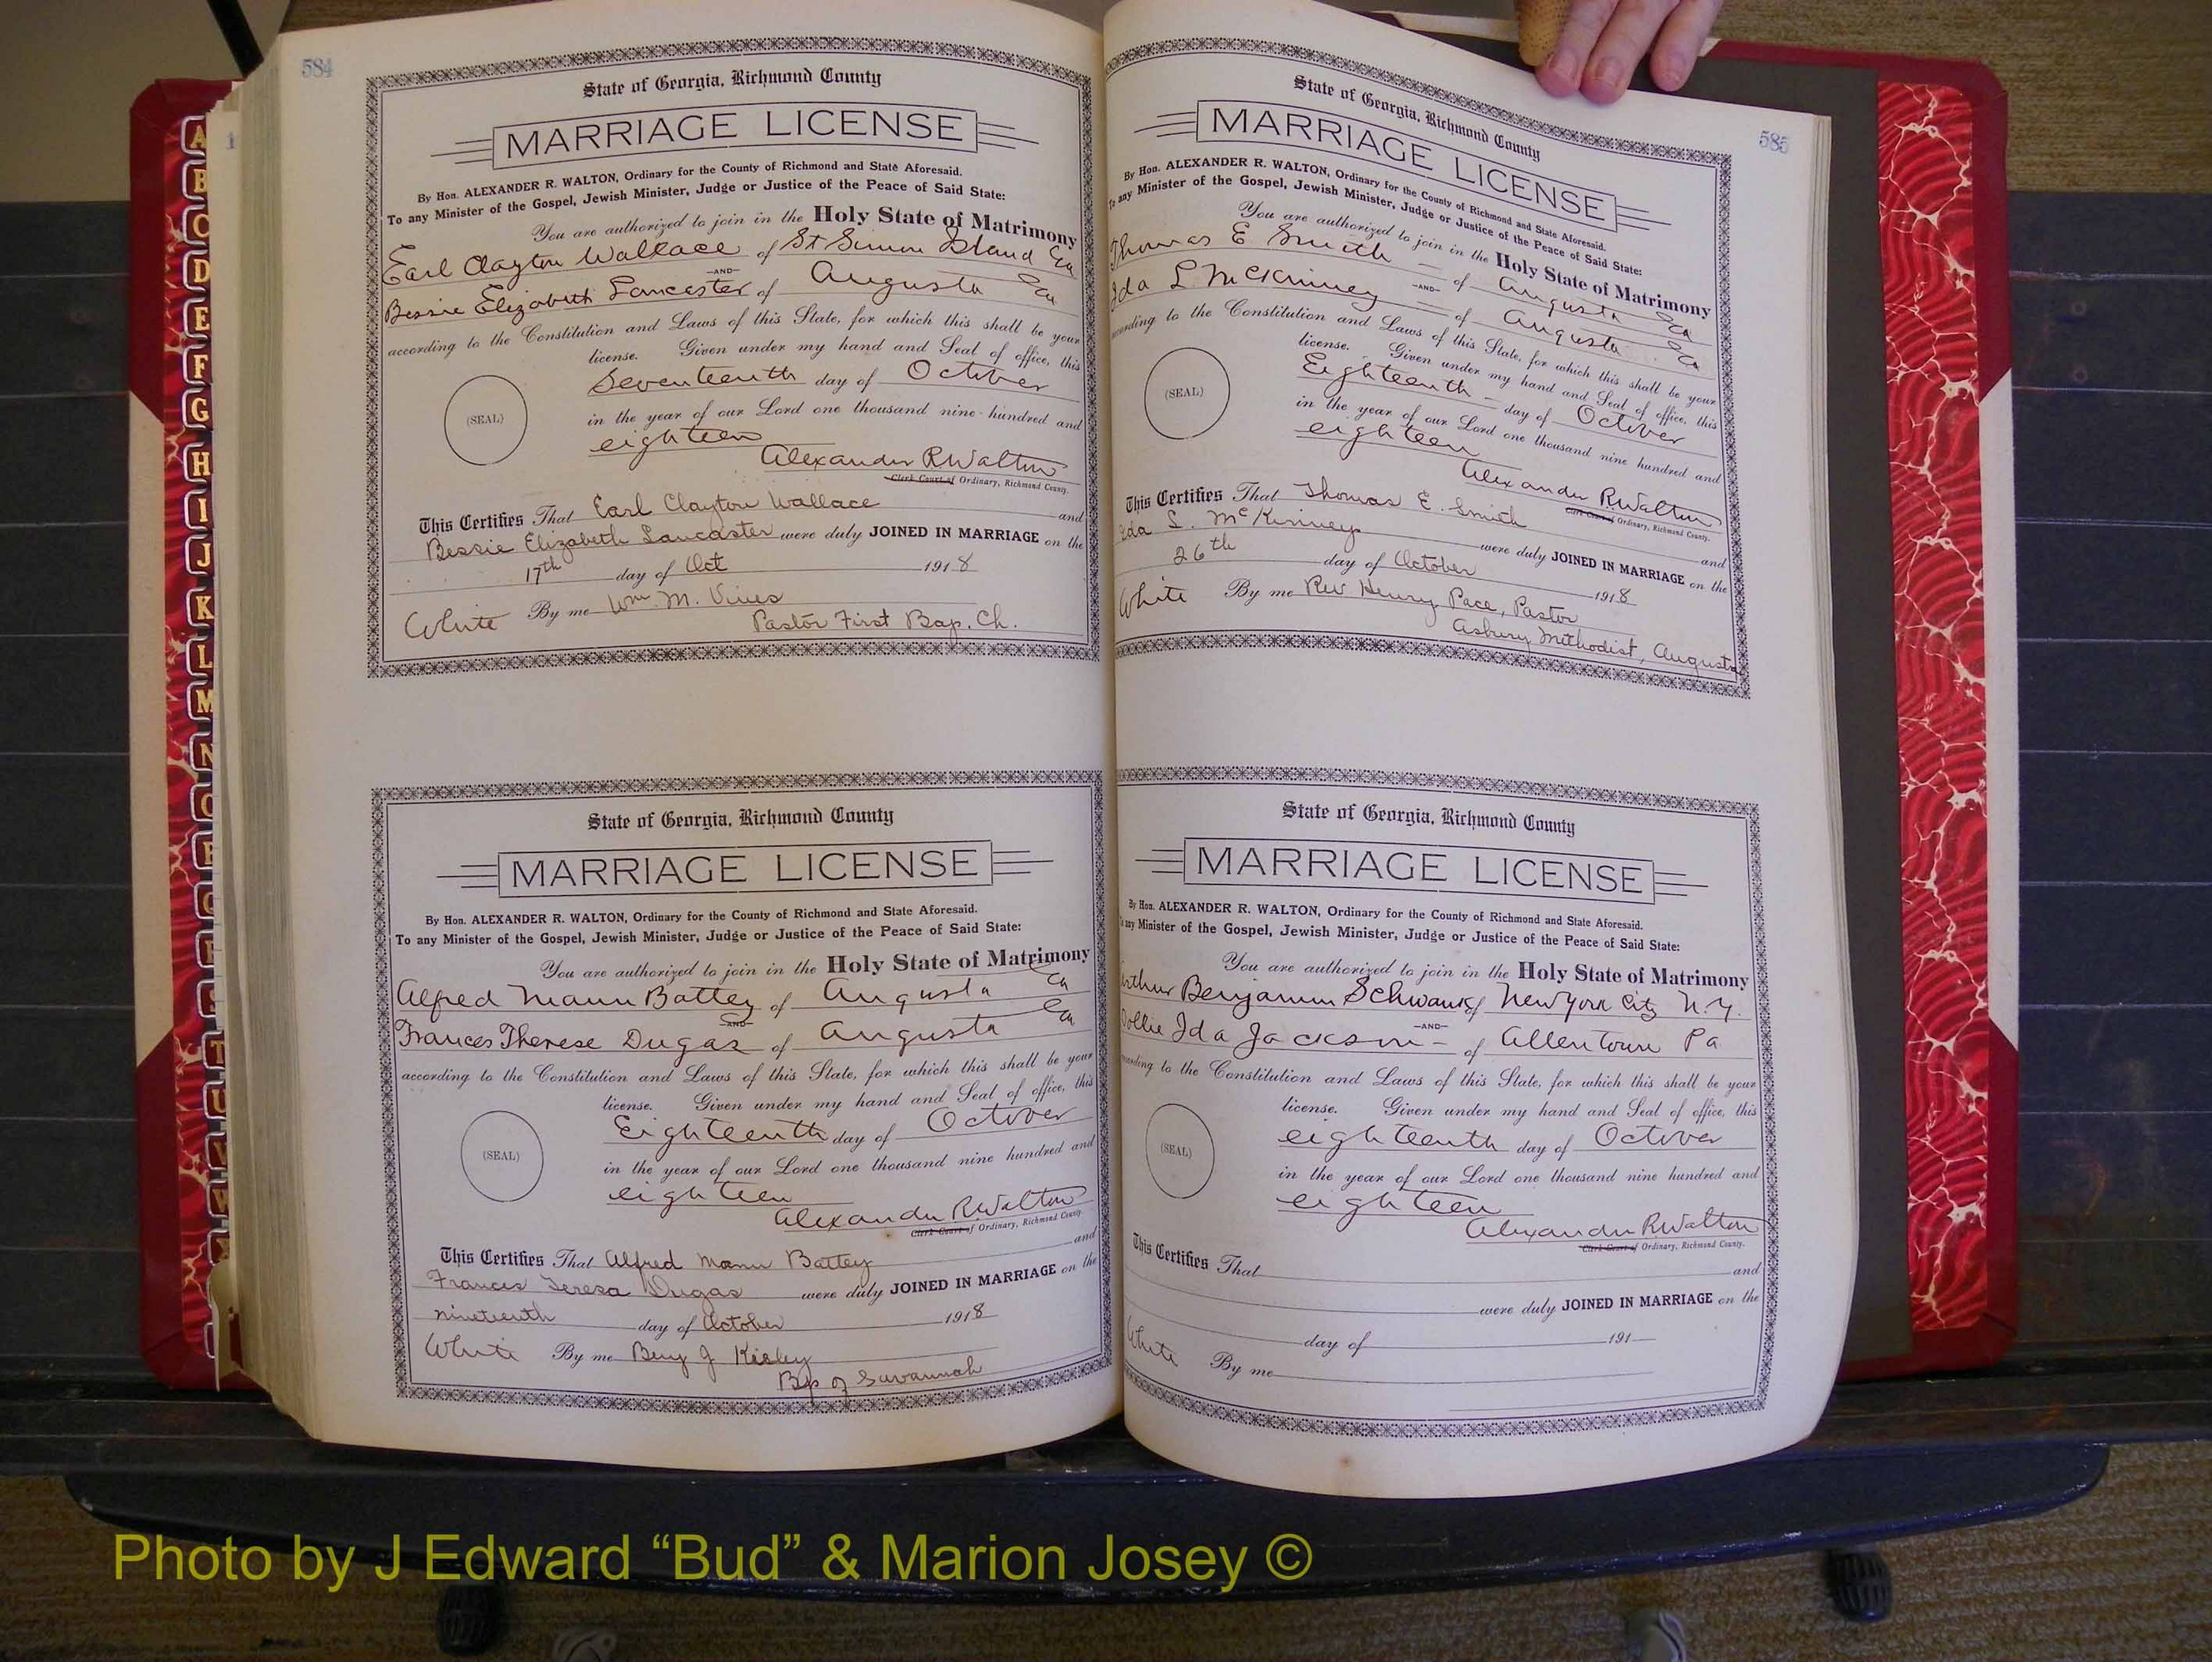 584
State of Georgia, Richmond County
MARRIAGE LICENSE
By Hon. ALEXANDER R. WALTON, Ordinary for the County of Richmond and State Aforesaid.
To any Minister of the Gospel, Jewish Minister, Judge or Justice of the Peace of Said State:
You are authorized to join in the Holy State of Matrimony
Earl Clayton Wallace of St Simon Island Ga
—AND—
Bessie Elizabeth Lancaster of Augusta Ga
according to the Constitution and Laws of this State, for which this shall be your
license. Given under my hand and Seal of office, this
Seventeenth day of October
(SEAL)
in the year of our Lord one thousand nine hundred and
eighteen
Alexander R Walton
Clerk Court of Ordinary, Richmond County.
This Certifies That Earl Clayton Wallace and
Bessie Elizabeth Lancaster were duly JOINED IN MARRIAGE on the
17th day of Oct 1918
White By me Wm. M. Vines
Pastor First Bap. Ch.
State of Georgia, Richmond County
MARRIAGE LICENSE
By Hon. ALEXANDER R. WALTON, Ordinary for the County of Richmond and State Aforesaid.
To any Minister of the Gospel, Jewish Minister, Judge or Justice of the Peace of Said State:
You are authorized to join in the Holy State of Matrimony
Alfred Mann Battey of Augusta Ga
—AND—
Frances Therese Dugas of Augusta Ga
according to the Constitution and Laws of this State, for which this shall be your
license. Given under my hand and Seal of office, this
Eighteenth day of October
(SEAL)
in the year of our Lord one thousand nine hundred and
eighteen
Alexander R Walton
Clerk Court of Ordinary, Richmond County.
This Certifies That Alfred Mann Battey and
Frances Teresa Dugas were duly JOINED IN MARRIAGE on the
nineteenth day of October 1918
White By me Benj J Keiley
Bp of Savannah
585
State of Georgia, Richmond County
MARRIAGE LICENSE
By Hon. ALEXANDER R. WALTON, Ordinary for the County of Richmond and State Aforesaid.
To any Minister of the Gospel, Jewish Minister, Judge or Justice of the Peace of Said State:
You are authorized to join in the Holy State of Matrimony
Thomas E Smith — of Augusta Ga
—AND—
Ida L McKinney — of Augusta Ga
according to the Constitution and Laws of this State, for which this shall be your
license. Given under my hand and Seal of office, this
Eighteenth — day of October
(SEAL)
in the year of our Lord one thousand nine hundred and
eighteen
Alexander R Walton
Clerk Court of Ordinary, Richmond County.
This Certifies That Thomas E. Smith and
Ida L. McKinney were duly JOINED IN MARRIAGE on the
26th day of October 1918
White By me Rev Henry Pace, Pastor
Asbury Methodist, Augusta
State of Georgia, Richmond County
MARRIAGE LICENSE
By Hon. ALEXANDER R. WALTON, Ordinary for the County of Richmond and State Aforesaid.
To any Minister of the Gospel, Jewish Minister, Judge or Justice of the Peace of Said State:
You are authorized to join in the Holy State of Matrimony
Arthur Benjamin of New York City N.Y.
—AND—
Dollie Ida Jackson — of Allentown Pa
according to the Constitution and Laws of this State, for which this shall be your
license. Given under my hand and Seal of office, this
eighteenth day of October
(SEAL)
in the year of our Lord one thousand nine hundred and
eighteen
Alexander R Walton
Clerk Court of Ordinary, Richmond County.
This Certifies That and
were duly JOINED IN MARRIAGE on the
day of 191
White By me
A
B
C
D
E
F
G
H
I
J
K
L
M
N
O
P
Q
T
U
V
W
Photo by J Edward “Bud” & Marion Josey ©